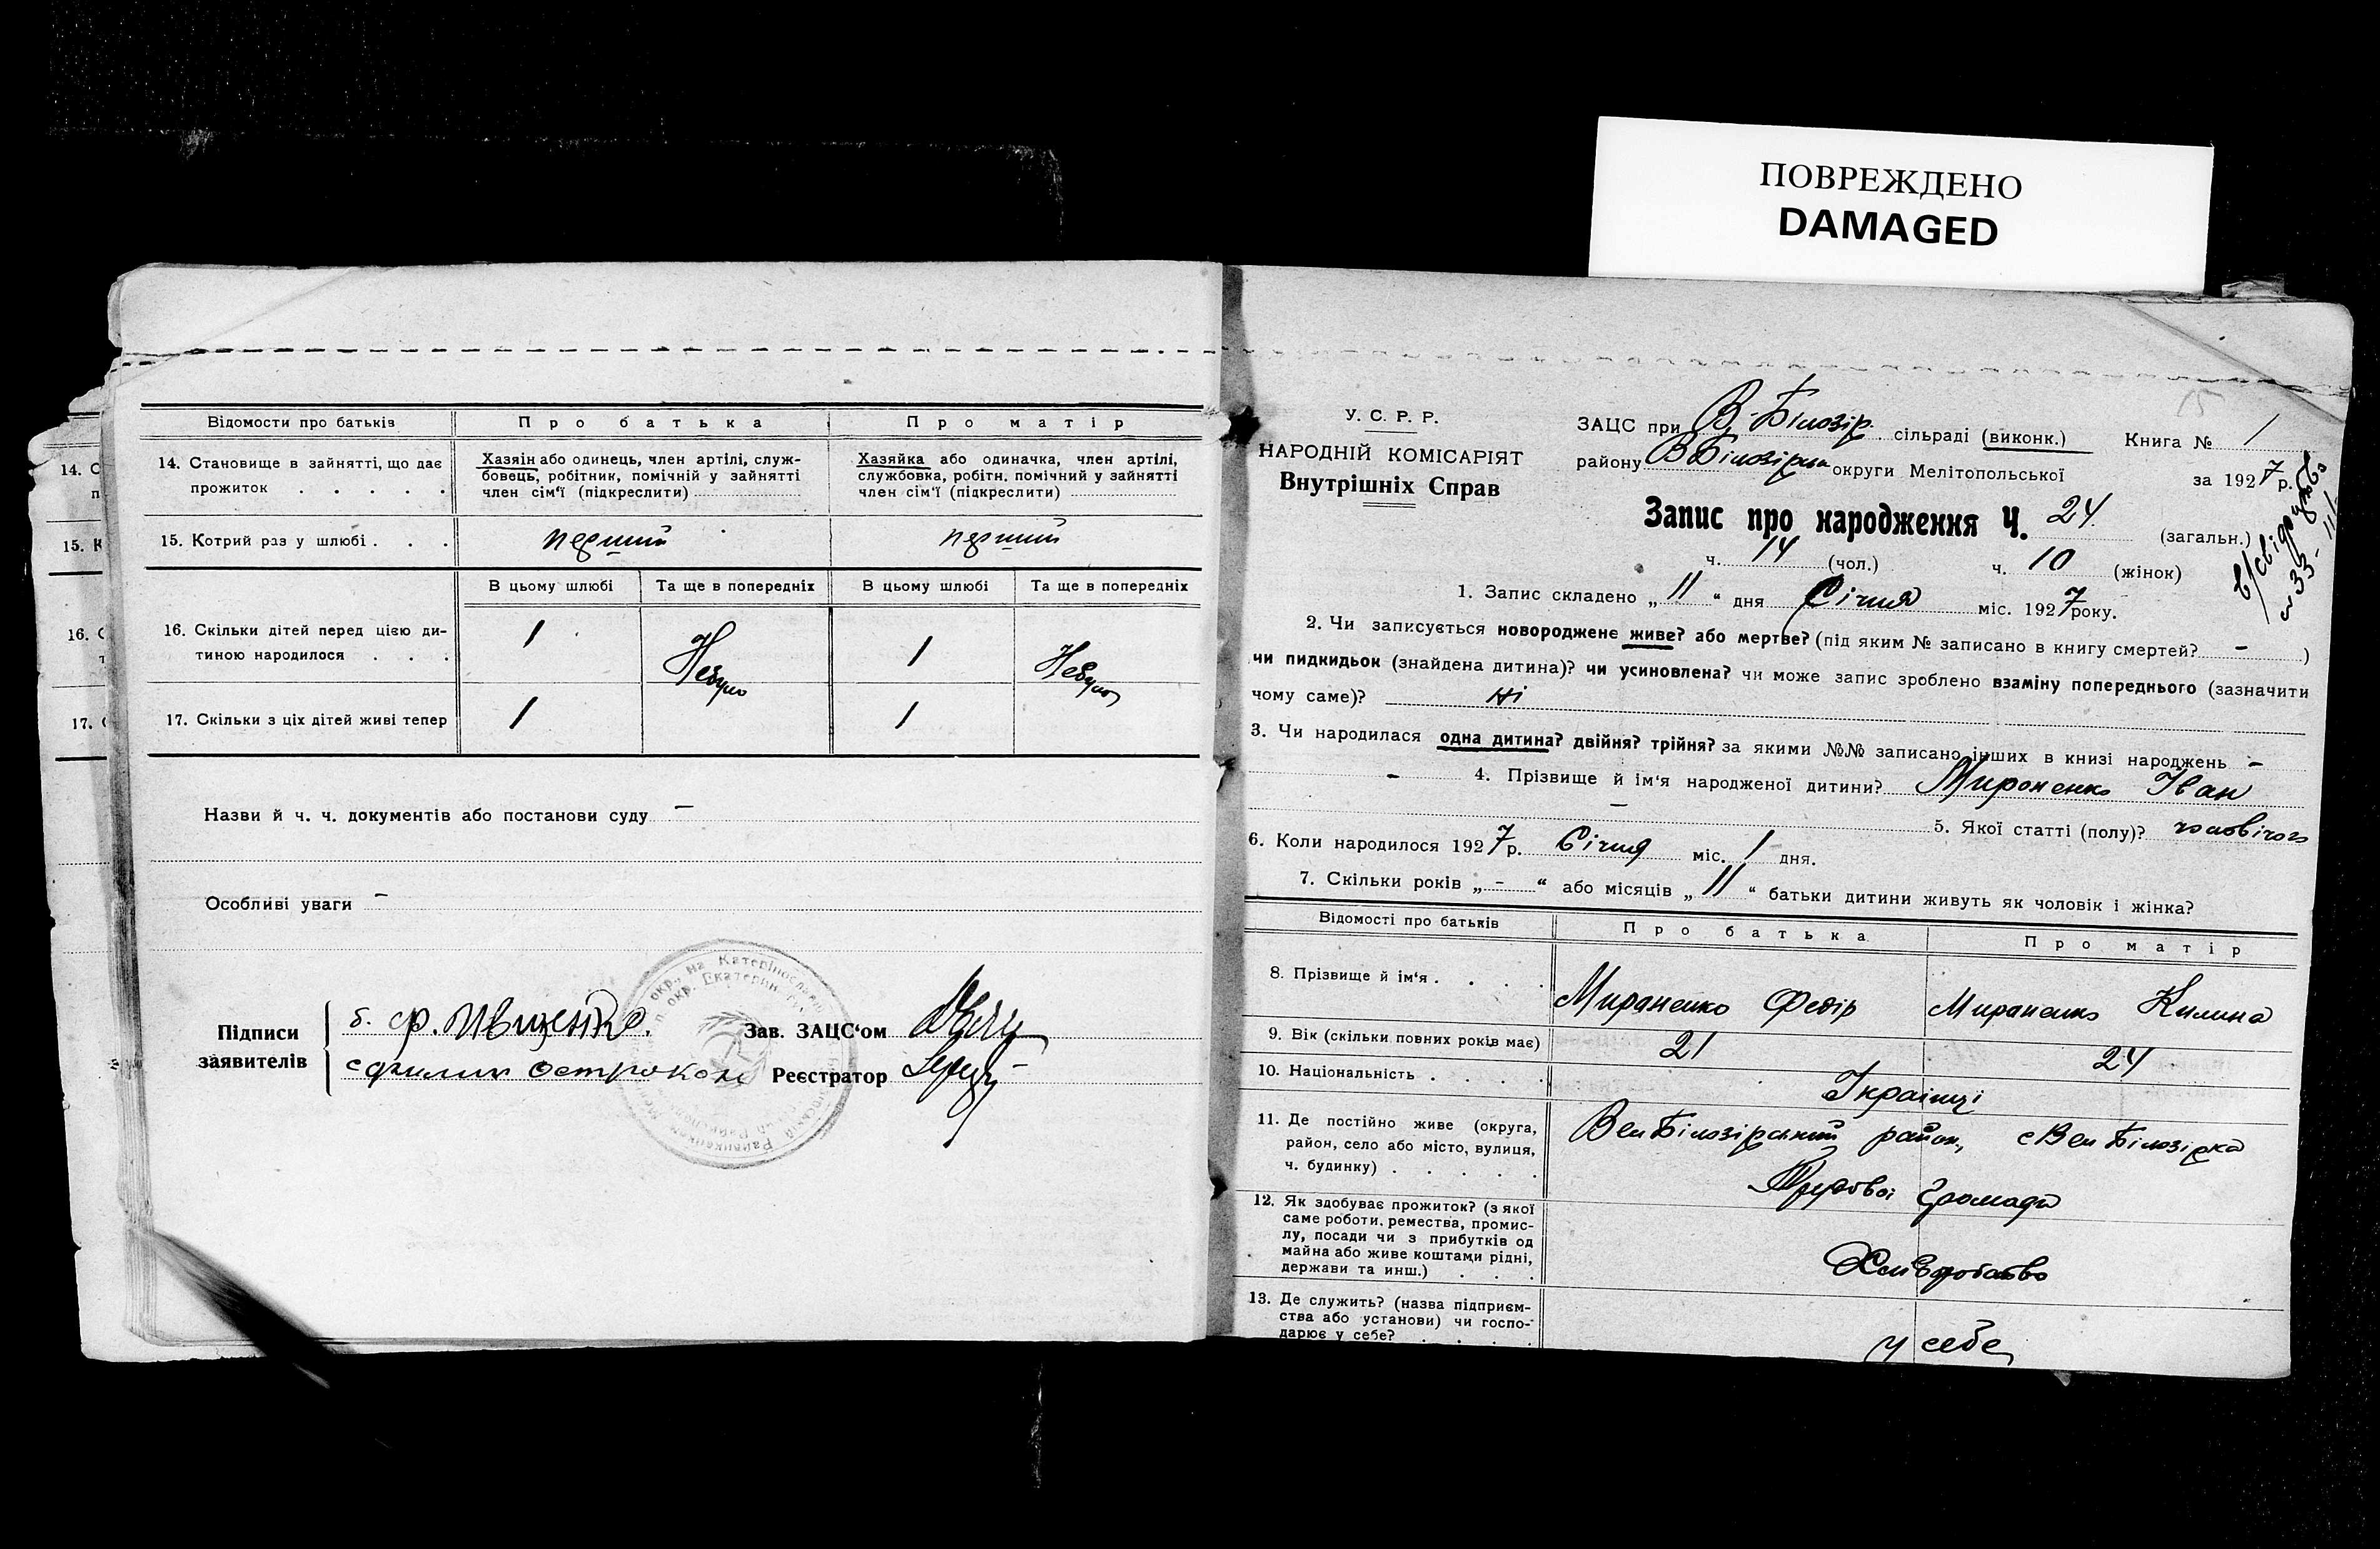 ПОВРЕЖДЕНО
DAMAGED
Відомости про батьків
Про батька
Про матір
14. Становище в зайнятті, що дає
прожиток . . . . .
Хазяїн або одинець, член артілі, служ-
бовець, робітник, помічній у зайнятті
член сім'ї (підкреслити)
Хазяйка або одиначка, член артілі,
службовка, робітн. помічний у зайнятті
член сім'ї (підкреслити)
15. Котрий раз у шлюбі . . .
перший
перший
В цьому шлюбі
Та ще в попередніх
В цьому шлюбі
Та ще в попередніх
16. Скільки дітей перед цією ди-
тиною народилося . . .
1
Небуло
1
Небуло
17. Скільки з ціх дітей живі тепер
1
1
Назви й ч. ч. документів або постанови суду —
Особливі уваги —
Підписи
заявителів
б. ф. Ивщенко.
Острокон
Зав. ЗАЦС'ом
Реєстратор
14. С
15. К
16. С
17. С
У. С. Р. Р.
НАРОДНІЙ КОМІСАРІЯТ
Внутрішніх Справ
ЗАЦС при В-Білозір. сільраді (виконк.)
Книга № 1
району В Білозірськ округи Мелітопольської
за 1927 р.
15
Запис про народження Ч. 24. (загальн.)
ч. 14 (чол.)
ч. 10 (жінок)
1. Запис складено „ 11 “ дня Січня міс. 1927 року.
2. Чи записується новороджене живе? або мертве? (під яким № записано в книгу смертей? - )
чи пидкидьок (знайдена дитина)? чи усиновлена? чи може запис зроблено взаміну попереднього (зазначити
чому саме)? Ні
3. Чи народилася одна дитина? двійня? трійня? за якими №№ записано інших в книзі народжень -
- 4. Прізвище й ім'я народженої дитини? Мироненко Іван
— 5. Якої статті (полу)? чоловічого
6. Коли народилося 1927 р. Січня міс. 1 дня.
7. Скільки років „ - “ або місяців „ 11 “ батьки дитини живуть як чоловік і жінка?
Відомості про батьків
Про батька
Про матір
8. Прізвище й ім'я . . . .
Мираненко Федір
Мираненко Килина
9. Вік (скільки повних років має)
21
24
10. Національність . . . . .
Українці
11. Де постійно живе (округа,
район, село або місто, вулиця,
ч. будинку) . . . . .
Вел Білозірський район, с Вел Білозірка
Трудової Громади
12. Як здобуває прожиток? (з якої
саме роботи, ремества, промис-
лу, посади чи з прибутків од
майна або живе коштами рідні,
держави та инш.) . . .
Хліборобство
13. Де служить? (назва підприєм-
ства або установи) чи госпо-
дарює у себе? . . . .
у себе